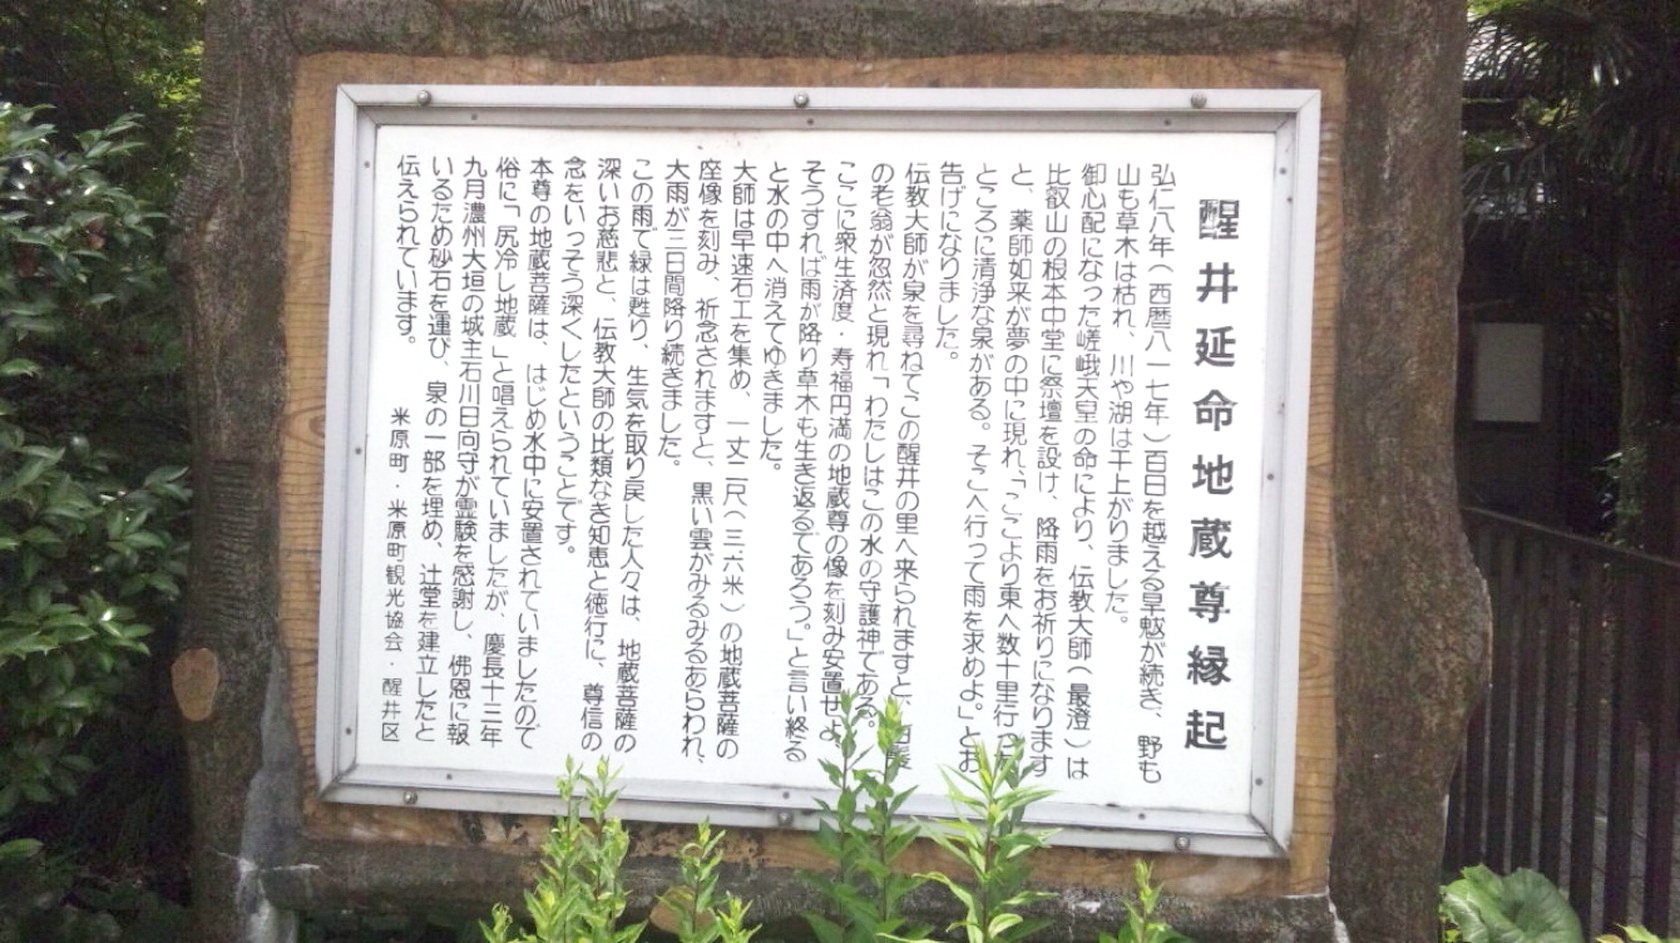 醒井延命地蔵尊縁起
弘仁八年(西暦八一七年)百日を越える旱魃が続き、野も
山も草木は枯れ、川や湖は干上がりました。
御心配になった嵯峨天皇の命により、伝教大師(最澄)は
比叡山の根本中堂に祭壇を設け、降雨をお祈りになります
と、薬師如来が夢の中に現れ、「ここより東へ数十里行った
ところに清浄な泉がある。そこへ行って雨を求めよ。」とお
告げになりました。
伝教大師が泉を尋ねてこの醒井の里へ来られますと、白髪
の老翁が忽然と現れ「わたしはこの水の守護神である。
ここに衆生済度・寿福円満の地蔵尊の像を刻み安置せよ、
そうすれば雨が降り草木も生き返るであろう。」と言い終る
と水の中へ消えてゆきました。
大師は早速石工を集め、一丈二尺(三・六米)の地蔵菩薩の
座像を刻み、祈念されますと、黒い雲がみるみるあらわれ、
大雨が三日間降り続きました。
この雨で緑は甦り、生気を取り戻した人々は、地蔵菩薩の
深いお慈悲と、伝教大師の比類なき知恵と徳行に、尊信の
念をいっそう深くしたということです。
本尊の地蔵菩薩は、はじめ水中に安置されていましたので
俗に「尻冷し地蔵」と唱えられていましたが、慶長十三年
九月濃州大垣の城主石川日向守が霊験を感謝し、佛恩に報
いるため砂石を運び、泉の一部を埋め、辻堂を建立したと
伝えられています。
米原町・米原町観光協会・醒井区